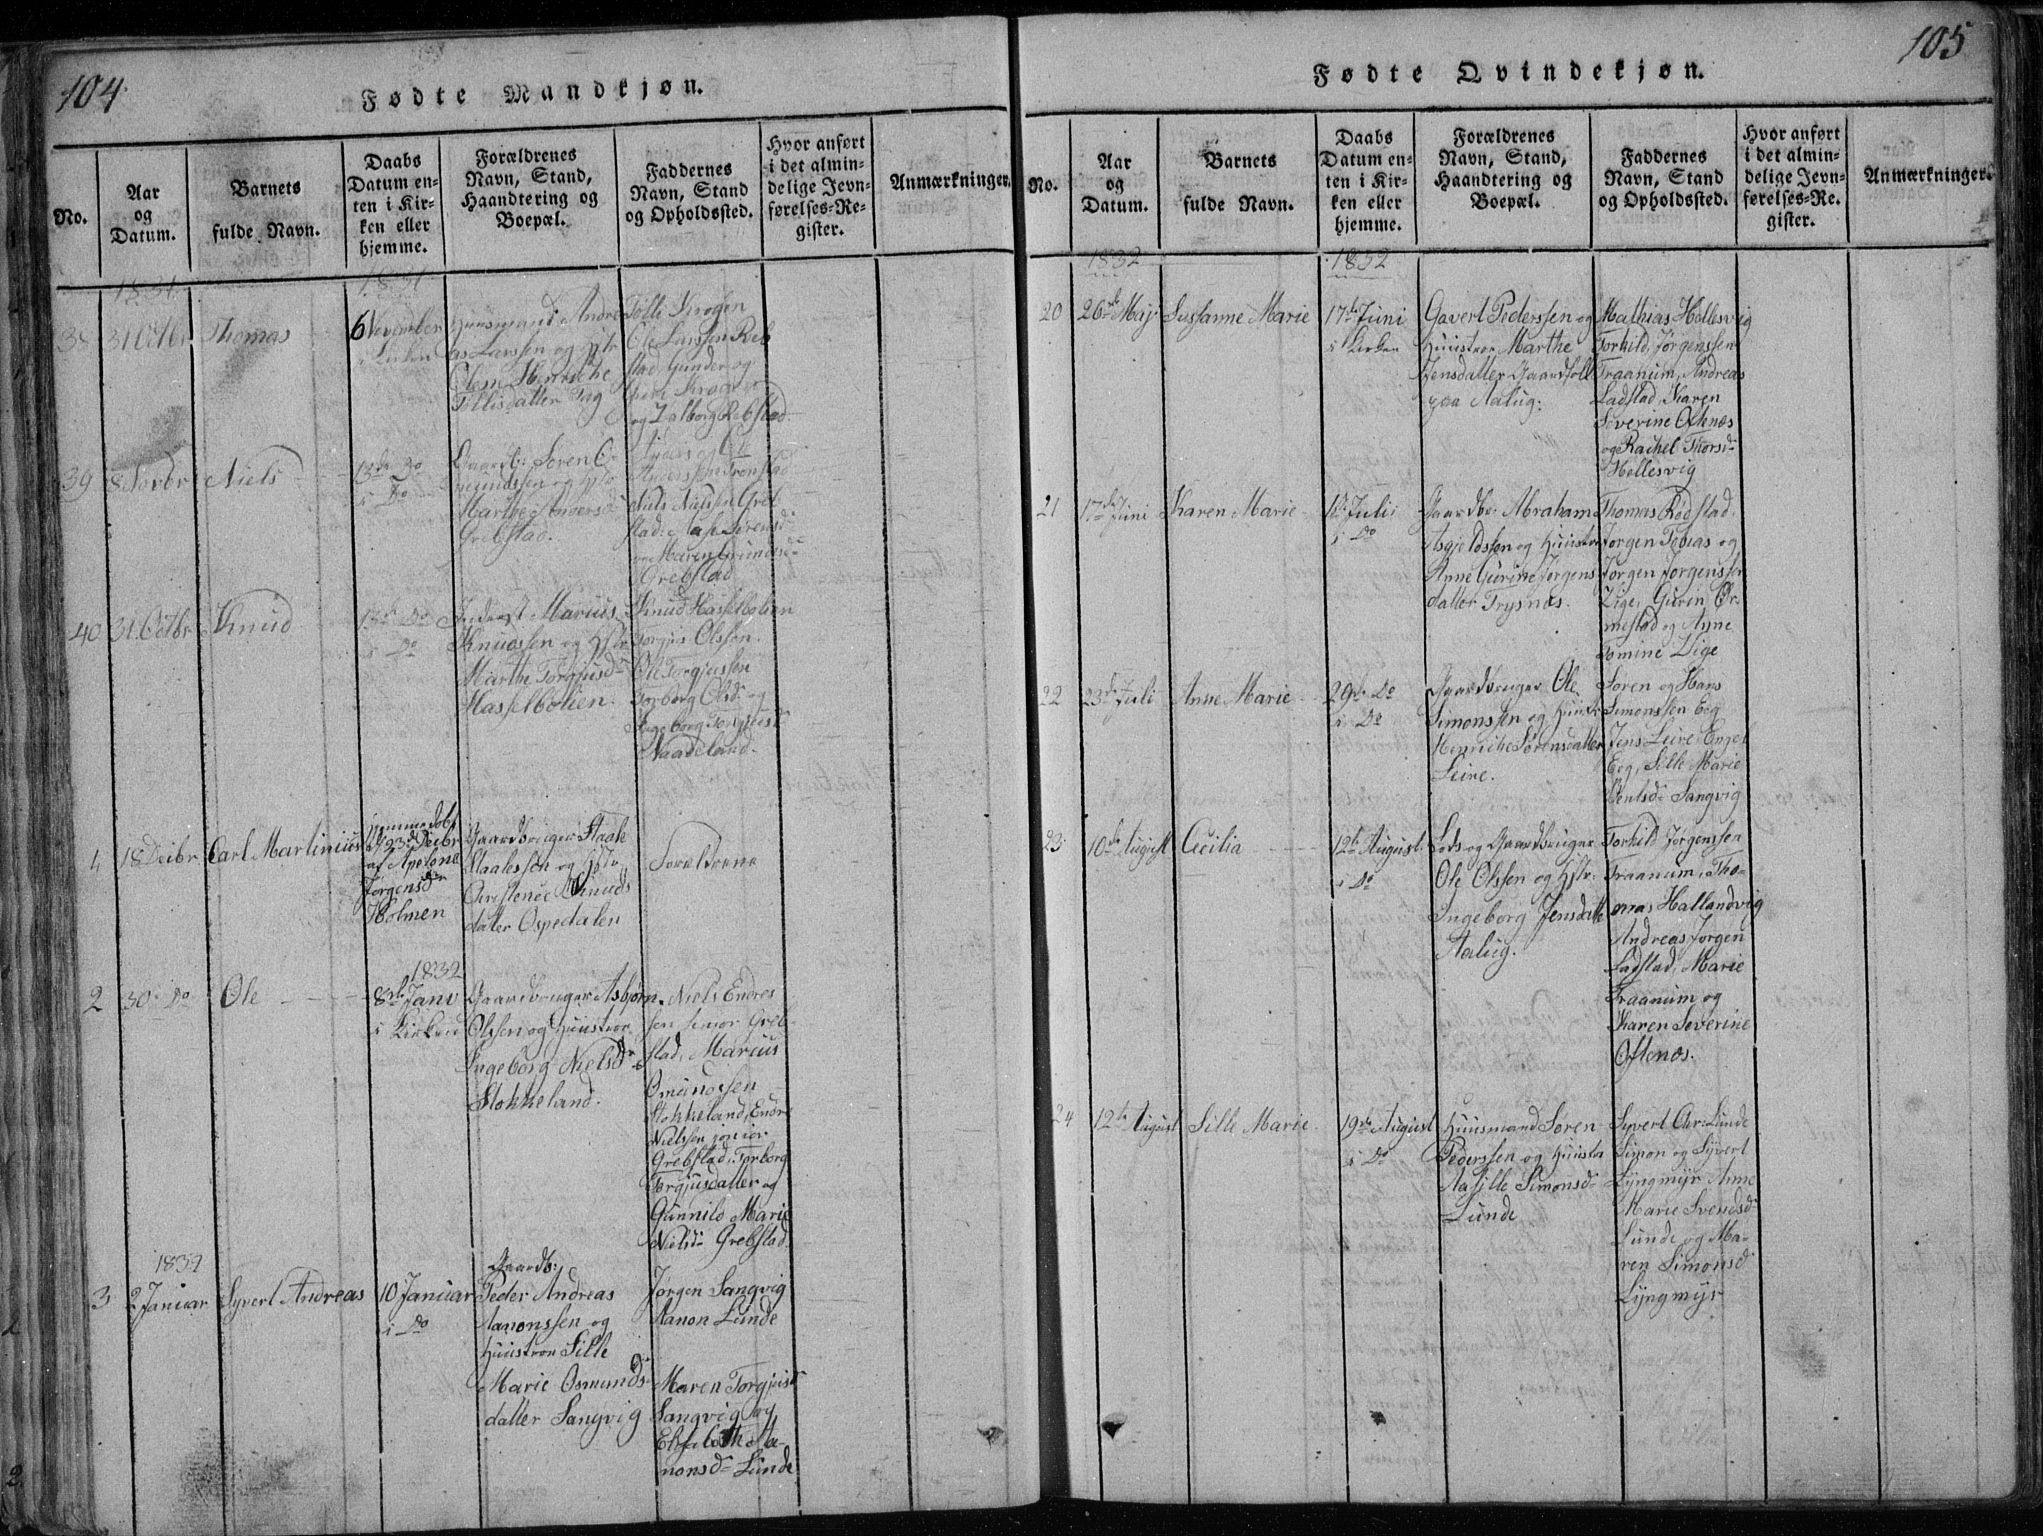 104
Fødte Mandkjøn.
No.
Aar
og
Datum.
Barnets
fulde Navn.
Daabs
Datum en-
ten i Kir-
ken eller
hjemme.
Forældrenes
Navn, Stand,
Haandtering og
Boepæl.
Faddernes
Navn, Stand
og Opholdssted.
Hvor anført
i det almin-
delige Jevn-
førelses-Re-
gister.
Anmærkninger.
1831
1831
38
31 Octbr
Thomas
6 November
i Kirken
Huusmand Andre
as Larssen og Hstr
Olene Henriche
Tollisdatter Tag
Tolle Krogen
Ole Larssen Reb
stad Gunder og
Krogen
og Valborg Rebstad
39
8 Novbr
Niels
13de Do
i Do
Gaardb: Søren O-
mundssen og Hstr
Marthe Anversd
Grebstad.
Anverssen Tronstad
Niels Nielsen Greb
stad: Aase Sørensd
og Maren Gundersd
Grebstad
40
31 Octbr
Knud
13de Do
i Do
Inderst Marius
Knudssen og Hstr
Marthe Torgjusd
Hasselbolien.
Knud Hasselbolien
Torgjus Olssen
Ole Torgjussen
Torborg Olsd og
Ingeborg Torgjusd
Naadeland.
18 Decbr
Carl Martinius
hjemmedobt
d 23de Decbr
af Apelone
Jørgensd
Holmen
Gaardbruger Staale
Staalessen og Hstr
Christense Knuds
datter Ospedalen
Forældrene
2
30 Do
Ole
1832
8de Janv
i Kirken
Gaardbruger Asbjørn
Olssen og Huustroe
Ingeborg Nielsd
Stokkeland.
Niels Endres
sen senior Greb
stad, Marcus
Omundssen
Stokkeland, Endre
Nielssen junior
Grebstad, Torborg
Torgjusdatter og
Gunnild Marie
Nielsd Grebstad.
1832
3
2 Januar
Syvert Andreas
10 Januar
i Do
Gaardb:
Peder Andreas
Aanonssen og
Huustroe Sille
Marie Osmunds
datter Sangvig
Jørgen Sangvig
Aanon Lunde
Maren Torgjusd
Sangvig og
Elisabeth Aa-
nonsd Lunde
105
Fødte Qvindekjøn.
No.
Aar
og
Datum.
Barnets
fulde Navn.
Daabs
Datum en-
ten i Kir-
ken eller
hjemme.
Forældrenes
Navn, Stand,
Haandtering og
Boepæl.
Faddernes
Navn, Stand
og Opholdssted.
Hvor anført
i det almin-
delige Jevn-
førelses-Re-
gister.
Anmærkninger.
1832
1832
20
26de Maj
Susanne Marie
17de Juni
i Kirken
Gavert Pederssen og
Huustroe Marthe
Jensdatter Gaardfolk
paa Aalug.
Mathias Hellesvig
Torkild Jørgenssen
Traanum, Andreas
Ladstad, Karen
Severine Oftenæs
og Rachel Thorsd
Hellesvig
21
17de Juni
Karen Marie
1ste Juli
i Do
Gaardbr: Abraham
Asgjeldssen og Huustroe
Anne Gurine Jørgens
datter Trysnæs.
Thomas Rødstad
Jørgen Tobias og
Jørgen Jørgenssen
Lige, Gurin Ør-
mestad og Anne
Tomine Lige
22
23de Juli
Anne Marie
29de Do
i Do
Gaardbruger Ole
Simonssen og Huustr
Henriche Sørensdatter
Leire.
Søren og Hans
Simonssen Eeg
Jens Leire Engel
Eeg, Sille Marie
Bentsd Sangvig
23
10de August
Cecilia
12te August
i Do
Lods og Gaardbruger
Ole Olssen og Hstr:
Ingeborg Jensdatter
Aalug.
Torkild Jørgenssen
Traanum, Tho-
mas Hallandvig
Andreas Jørgen
Ladstad, Marie
Traanum og
Karen Severine
Oftenæs.
24
12te August
Sille Marie
19de August
i Do
Huusmand Søren
Pederssen og Huustr
Aasille Simonsd
Lunde
Syvert Chr: Lunde
Simon og Syvert
Lyngmyr Anne
Marie Svendsd
Lunde og Ma-
ren Simonsd
Lyngmyr